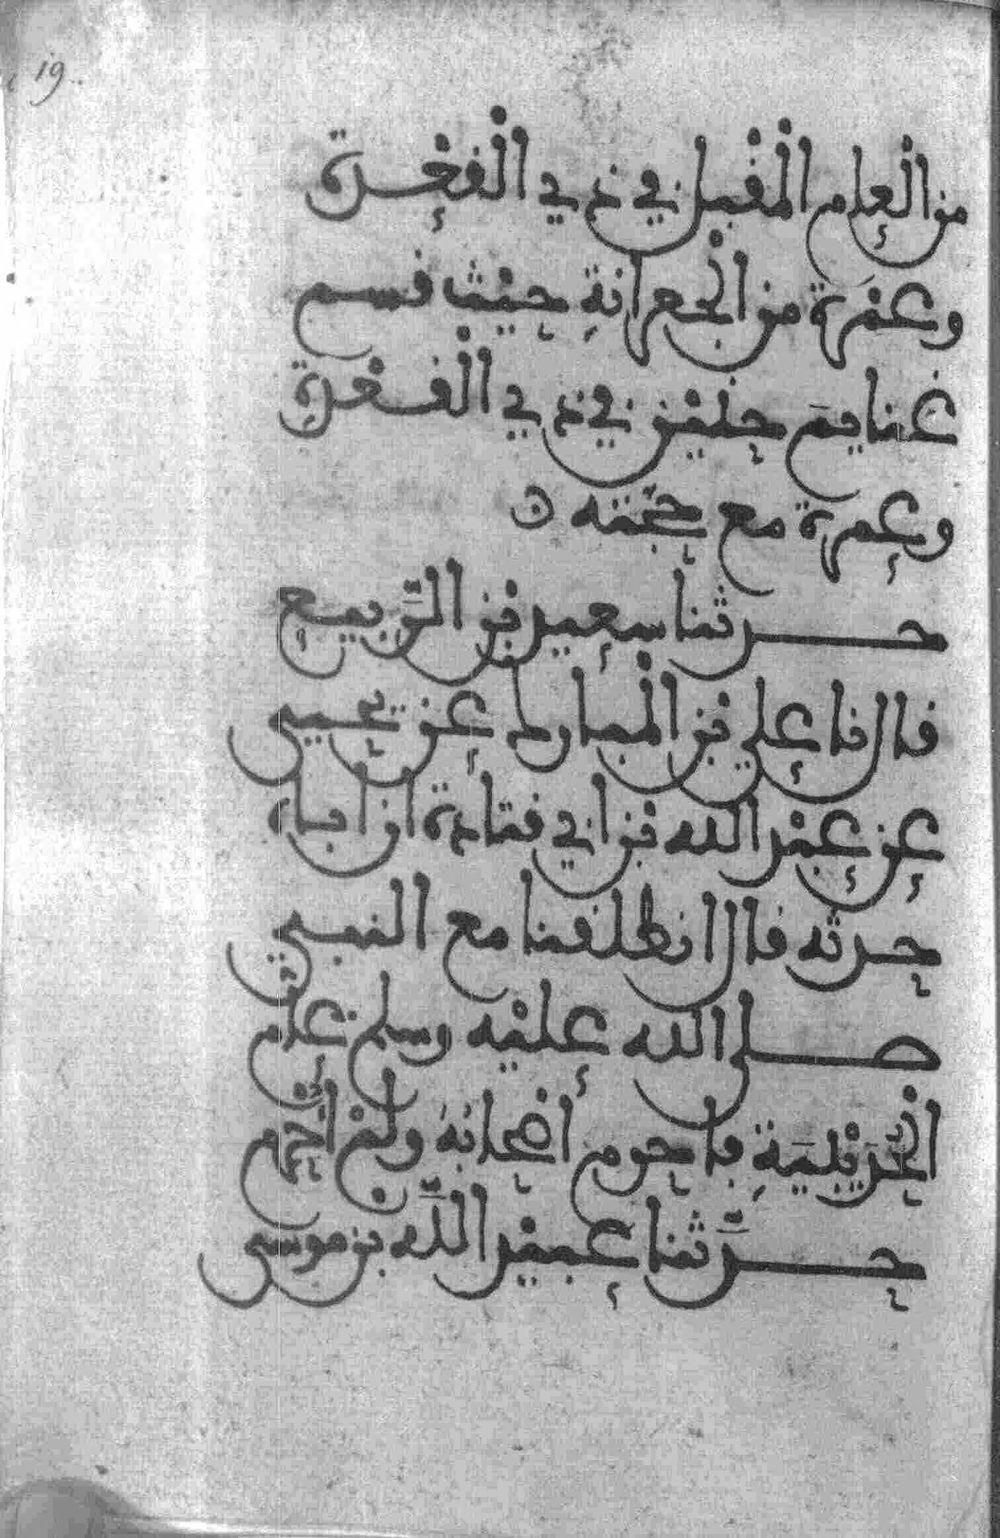 19
من العام المقبل في ذي القعدة
وعمرة من الجعرانة حيث قسم
غنايم حنين في ذي القعدة
وعمرة مع حجته
حدثنا سعيد بن الربيع
قال نا علي بن المبارك عن يحيى
عن عبد الله بن ابي قتادة ان اباه
حدثه قال انطلقنا مع النبي
صلى الله عليه وسلم عام
الحديبية فاحرم اصحابه ولم احرم
حدثنا عبيد الله بن موسى